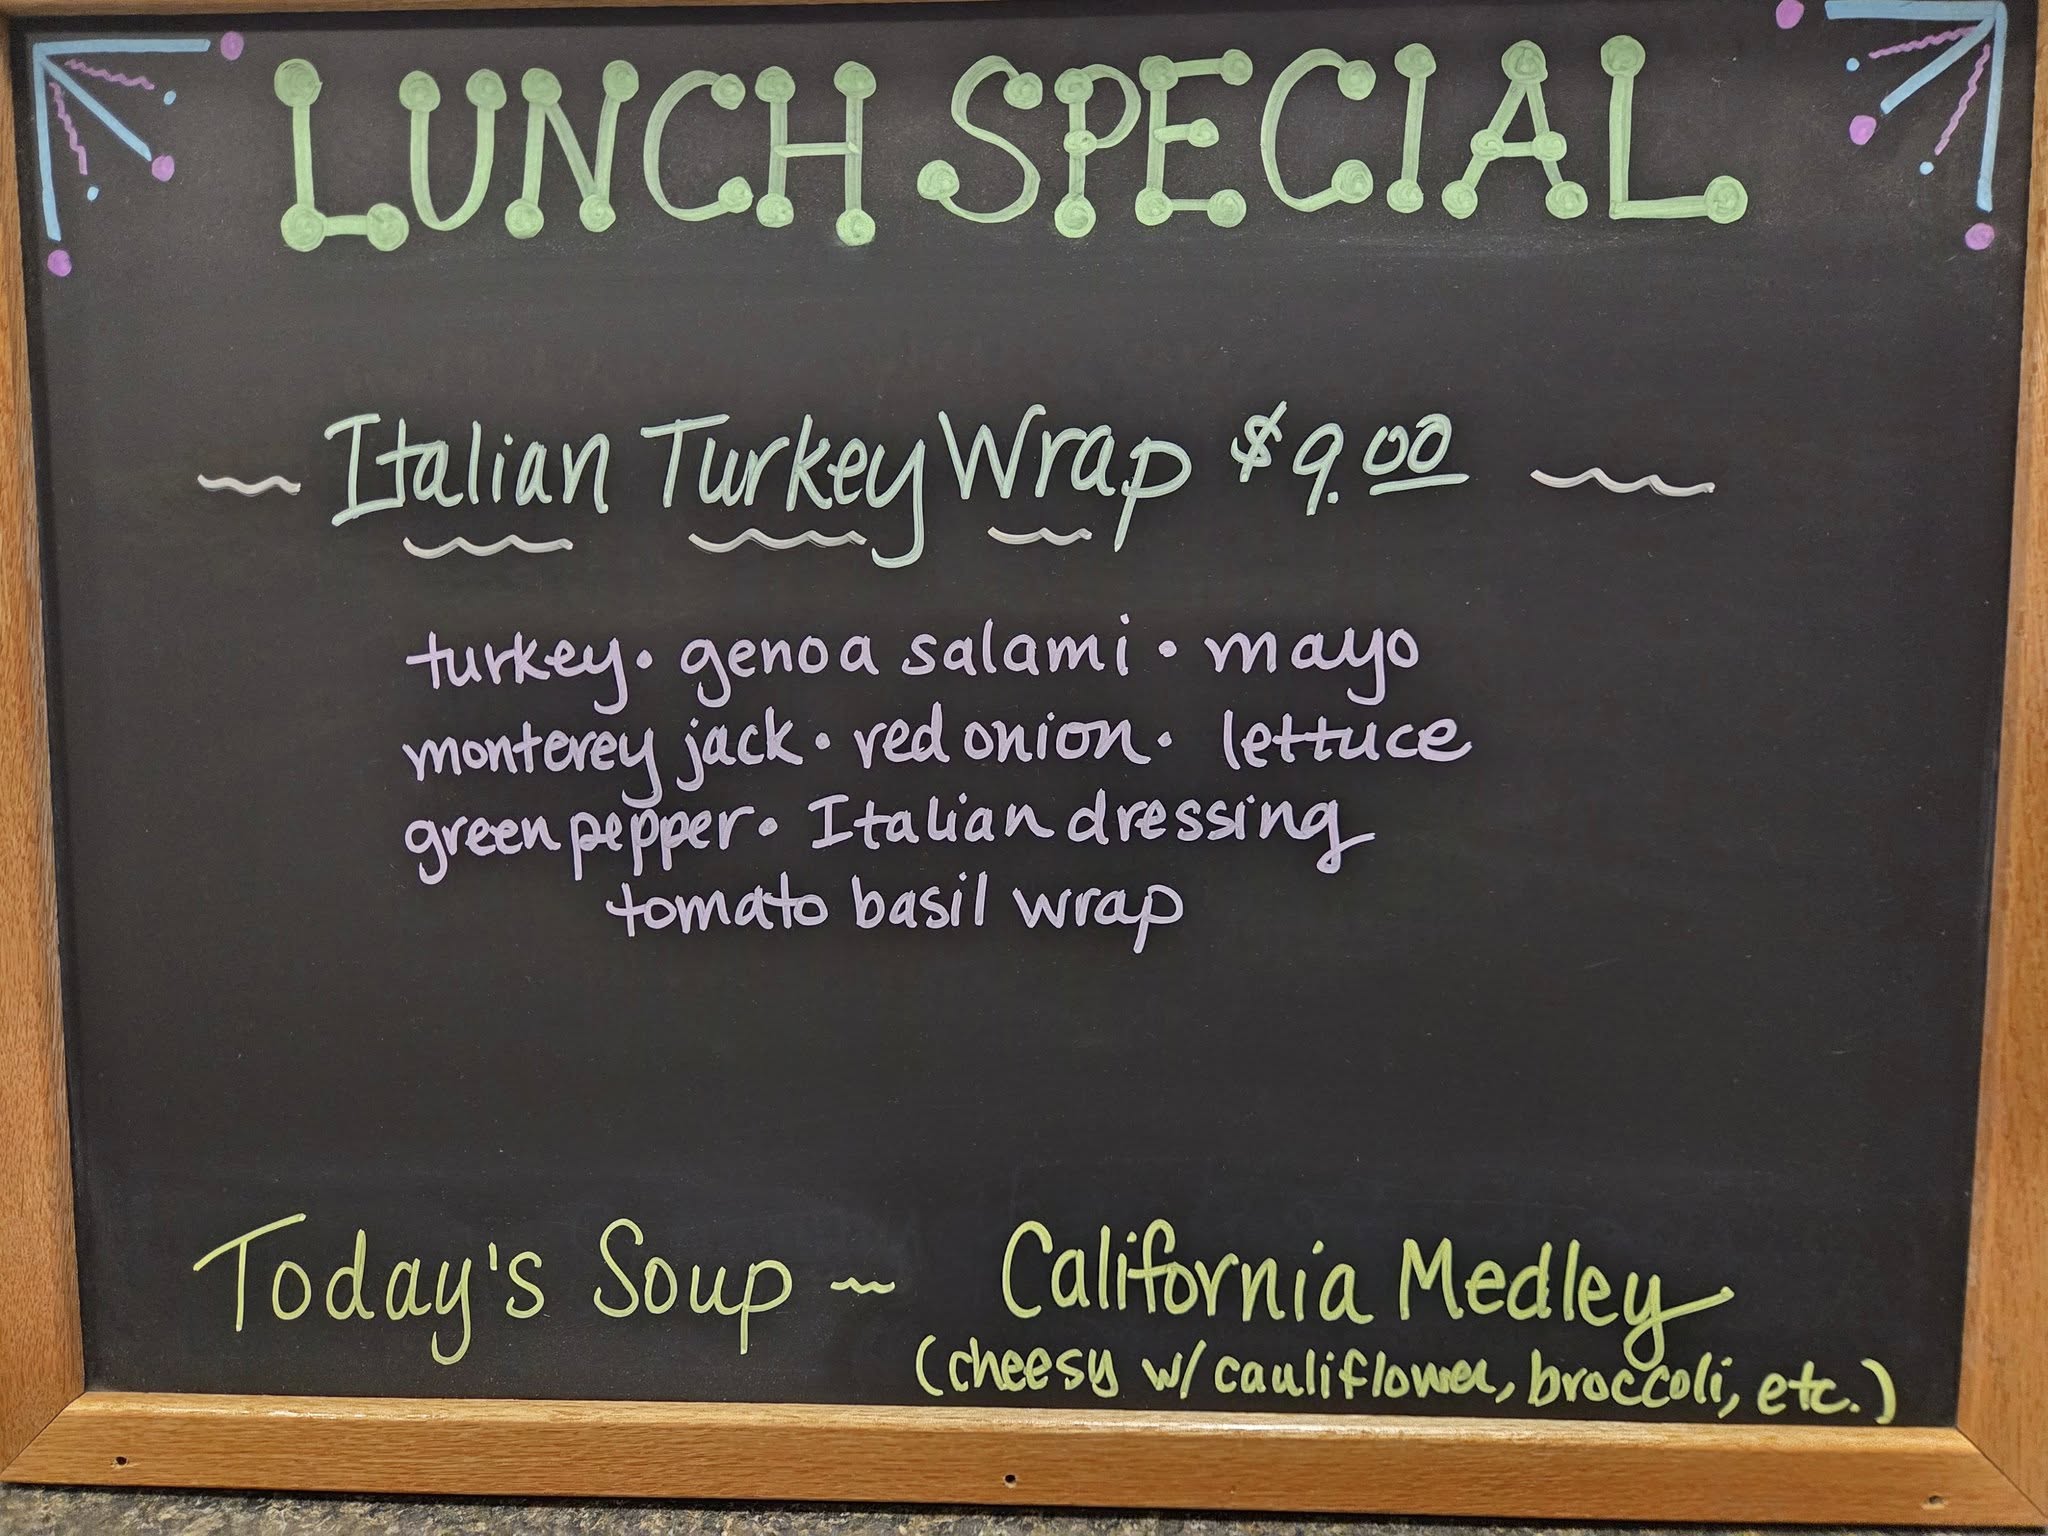 LUNCH SPECIAL
~ Italian Turkey Wrap $9.00 ~
turkey • genoa salami • mayo
monterey jack • red onion • lettuce
green pepper • Italian dressing
tomato basil wrap
Today's Soup ~ California Medley
(cheesy w/ cauliflower, broccoli, etc.)